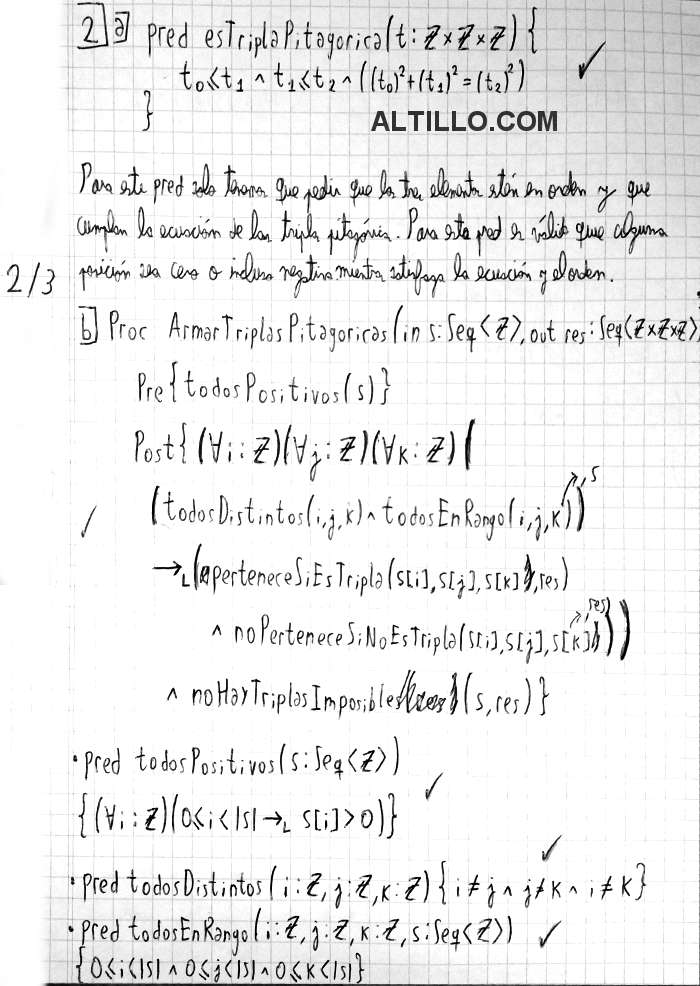 2 a) pred esTriplaPitagorica(t: ℤ×ℤ×ℤ) {
t₀ ≤ t₁ ∧ t₁ ≤ t₂ ∧ ((t₀)² + (t₁)² = (t₂)²)
}
ALTILLO.COM
Para este pred solo tenemos que pedir que los tres elementos estén en orden y que
cumplan la ecuación de las tripla pitagórica. Para este pred es válido que alguna
2/3
posición sea cero o incluso negativa mientras satisfaga la ecuación y el orden.
b) Proc ArmarTriplasPitagoricas(in s: Seq<ℤ>, out res: Seq<ℤ×ℤ×ℤ>)
Pre{todosPositivos(s)}
Post{(∀i: ℤ)(∀j: ℤ)(∀k: ℤ)(
(todosDistintos(i,j,k) ∧ todosEnRango(i,j,k,s))
→L (perteneceSiEsTripla(s[i],s[j],s[k],res)
∧ noPerteneceSiNoEsTripla(s[i],s[j],s[k],res)))
∧ noHayTriplasImposibles(s,res)}
• pred todosPositivos(s: Seq<ℤ>)
{(∀i: ℤ)(0 ≤ i < |s| →L s[i] > 0)}
• pred todosDistintos(i: ℤ, j: ℤ, k: ℤ) {i ≠ j ∧ j ≠ k ∧ i ≠ k}
• pred todosEnRango(i: ℤ, j: ℤ, k: ℤ, s: Seq<ℤ>)
{0 ≤ i < |s| ∧ 0 ≤ j < |s| ∧ 0 ≤ k < |s|}